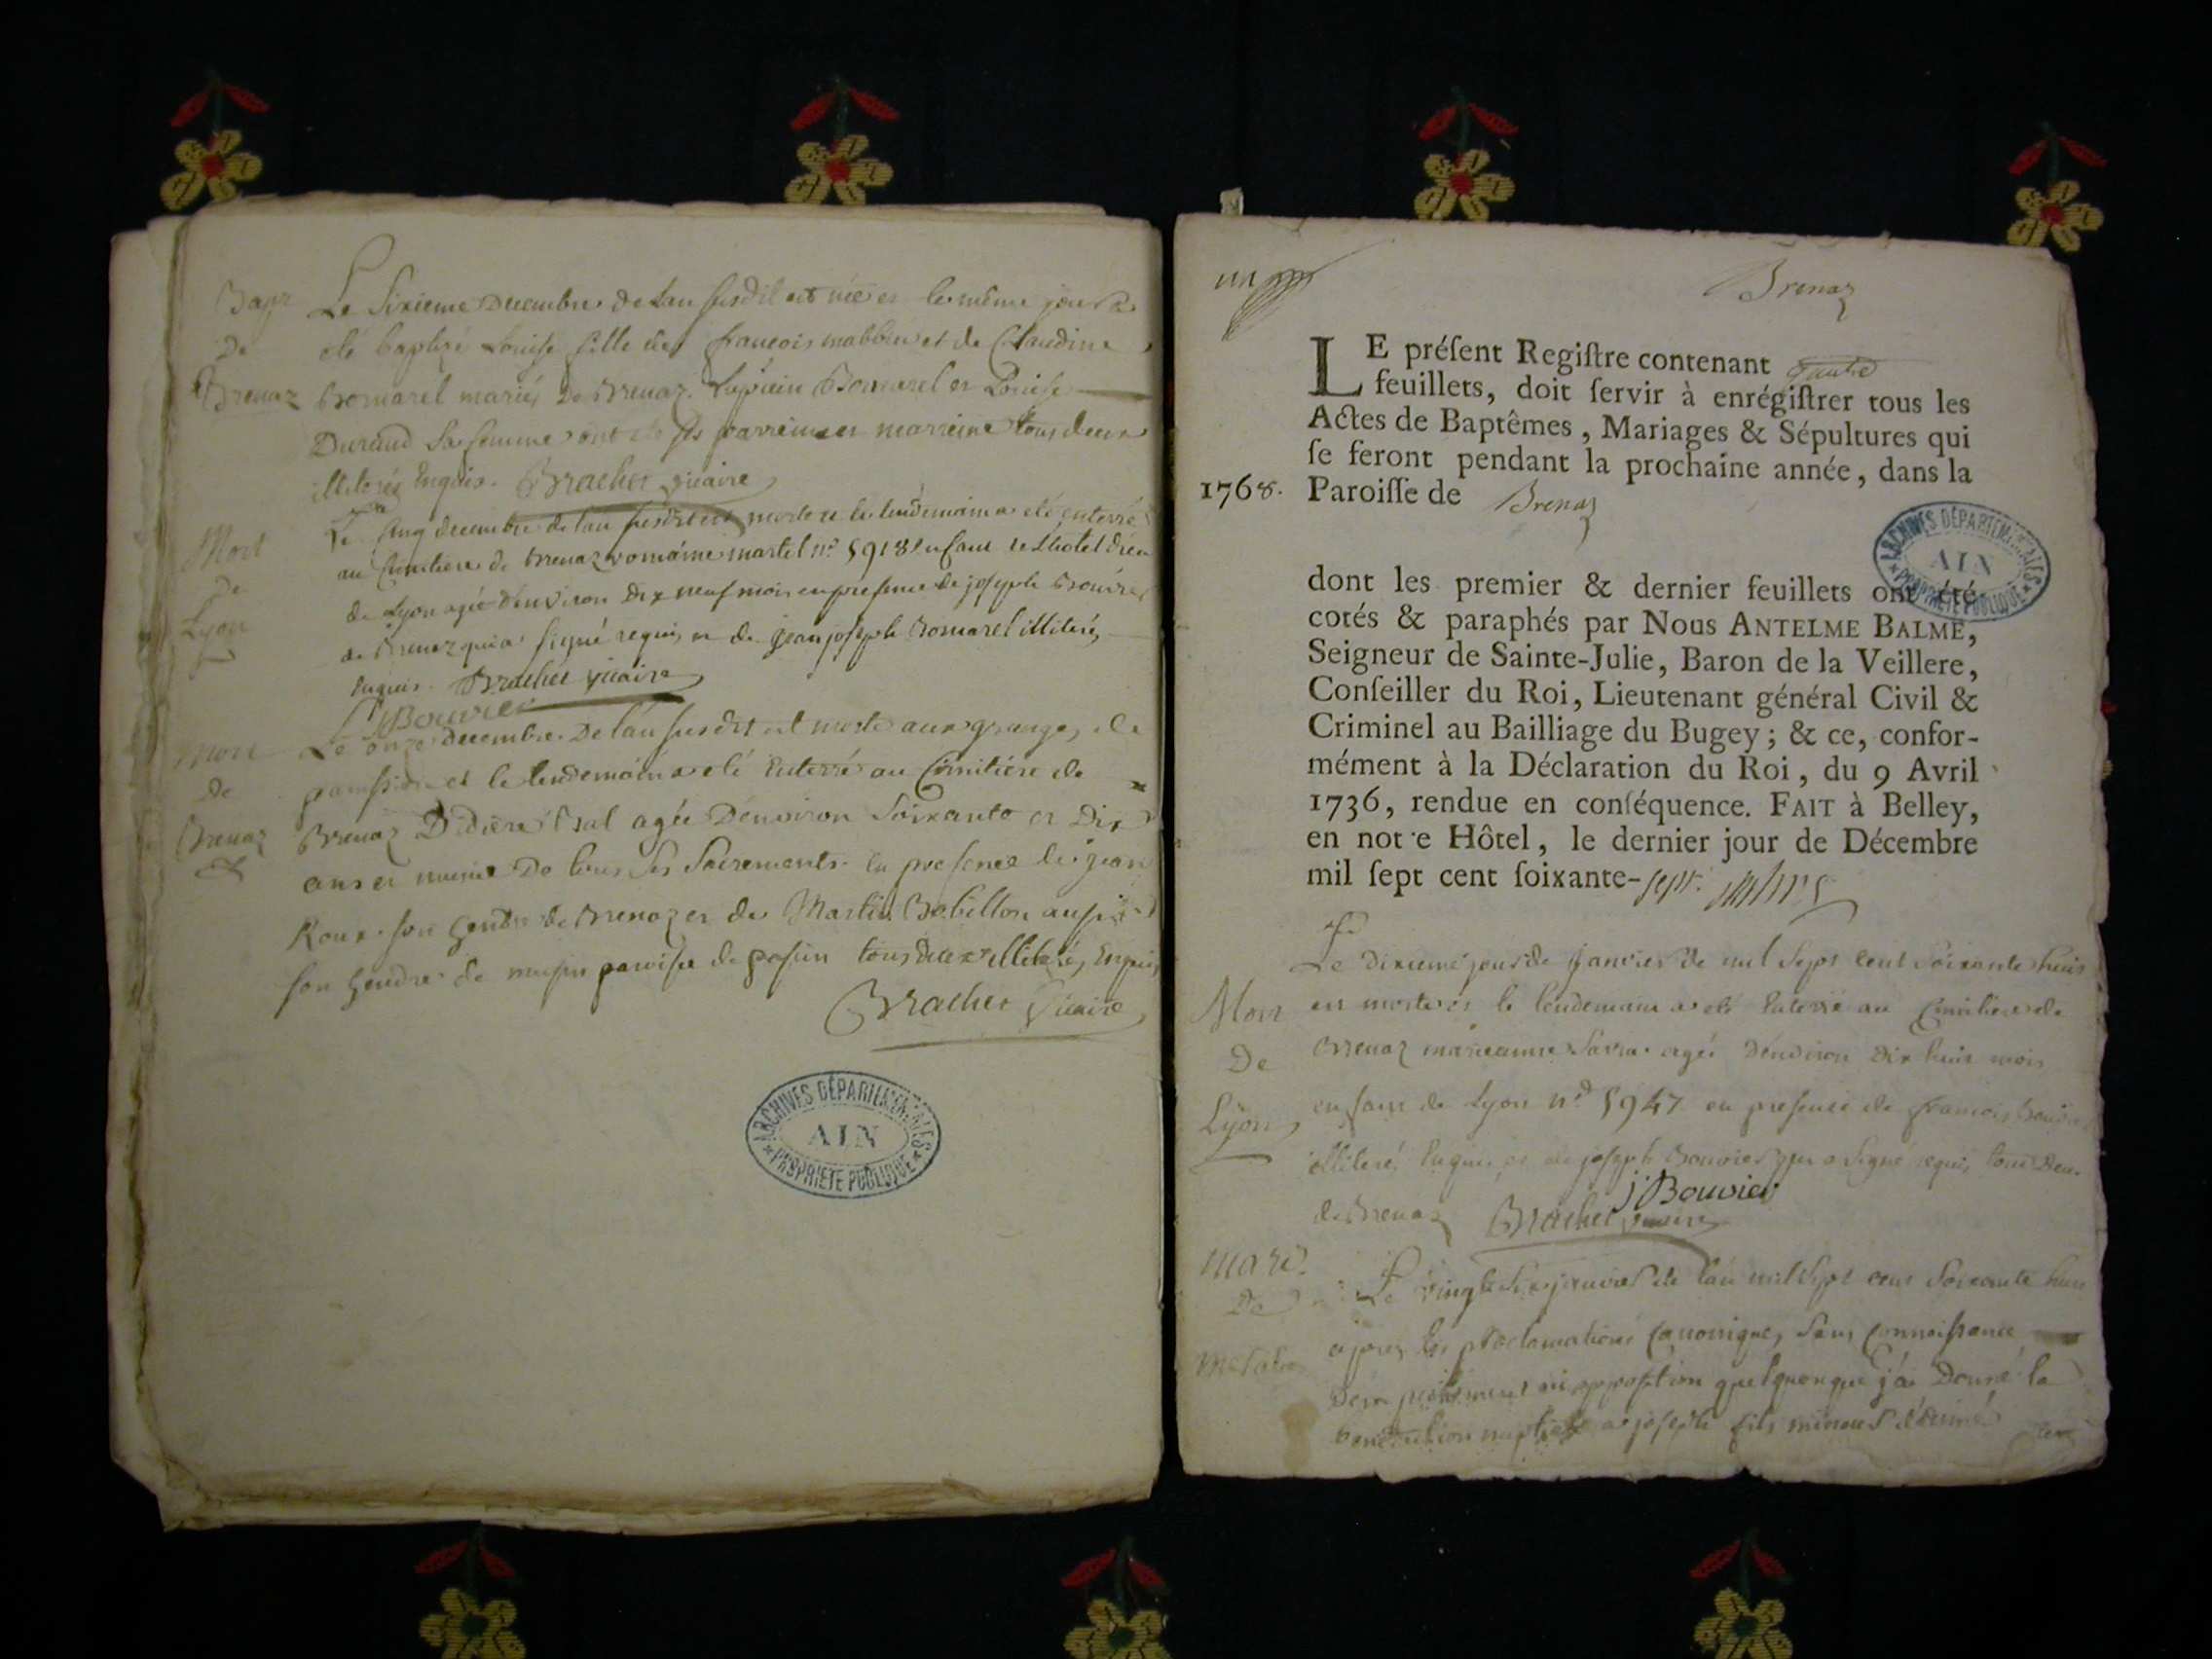 Bapt
De
Brenaz
Le Sixieme Decembre de Lan susdit est née et le même jour a
été baptisé Louise fille de françois et de Claudine
Bomarel mariés De Brenaz. Bomarel et Louise
Durand Sa femme ont parrein et marreine tous deux
illiterés Enquis. Brachet vicaire
Mort
De
Lyon
Le cinq decembre de lan susdit est morte et le lendemain a été enterré
au Cimitiere de Brenaz romaine martel nº 5918 enfant de Lhotel dieu
de Lyon agée d'environ Dix neuf mois en presence de joseph Bouvier
de Brenaz qui a signé requis et de jean joseph Bomarel illiteré,
Enquis. Brachet vicaire
J Bouvier
Mort
De
Brenaz
Le onze decembre De lan susdit est morte aux granges de
et le lendemain a été Enterré au Cimitiere de
Brenaz Didiere agée Denviron Soixante et Dix
ans et munie De tous ses Sacrements. En presence de jean
Roux son Gendre de Brenaz et de Martin Bobillon aussi
son Gendre de paroisse de tous deux illiterés, Enquis
Brachet Vicaire
ARCHIVES DÉPARTEMENTALES
AIN
PROPRIETE PUBLIQUE
un
Brenaz
LE préſent Regiſtre contenant quatre
feuillets, doit ſervir à enrégiſtrer tous les
Actes de Baptêmes, Mariages & Sépultures qui
ſe feront pendant la prochaine année, dans la
1768. Paroiſſe de Brenaz
ARCHIVES DÉPARTEMENTALES
AIN
PROPRIETE PUBLIQUE
dont les premier & dernier feuillets ont été
cotés & paraphés par Nous ANTELME BALME,
Seigneur de Sainte-Julie, Baron de la Veillere,
Conſeiller du Roi, Lieutenant général Civil &
Criminel au Bailliage du Bugey; & ce, confor-
mément à la Déclaration du Roi, du 9 Avril
1736, rendue en conſéquence. FAIT à Belley,
en not e Hôtel, le dernier jour de Décembre
mil ſept cent ſoixante-sept.
Mort
De
Lyon
Le dixieme jour de janvier de mil Sept cent Soixante huit
est morte et le lendemain a été Enterré au Cimitiere de
Brenaz marieanne agée d'environ dix huit mois
enfant de Lyon nº 5947 en presence de francois Bouvier
illiteré, Enquis et de joseph Bouvier qui a Signé requis tous Deux
de Brenaz Brachet vicaire
j Bouvier
Mari.
De
Le vingt Six janvier de lan mil Sept cent Soixante huit
apres les proclamations Canoniques, Sans Connoissance
Dempechement ni opposition quelquonque j'ai Donné la
benediction nuptiale a joseph fils mineur